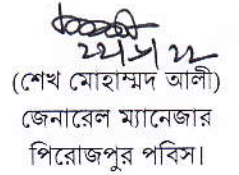 (শেখ মোহাম্মদ আলী)
জেনারেল ম্যানেজার
পিরোজপুর পবিস।